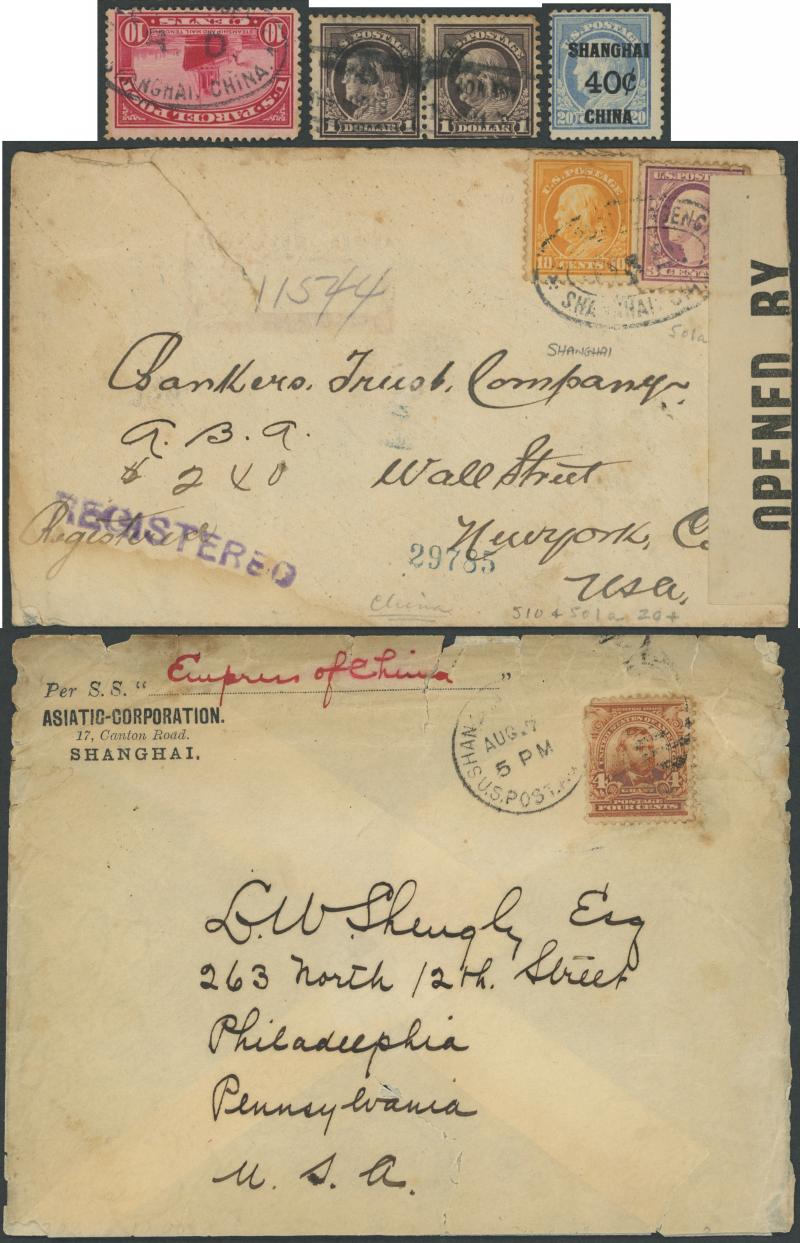 U.S. PARCEL POST
10 CENTS 10
STEAMSHIP AND MAIL TENDER
SHANGHAI, CHINA.
U.S. POSTAGE
1 DOLLAR 1
U.S. POSTAGE
1 DOLLAR 1
SHANGHAI
40¢
CHINA
20 20
U.S. POSTAGE
10 CENTS 10
U.S. POST
3 CENTS
SHANGHAI
11544
501a
SHANGHAI
Bankers. Trust. Company.
A. B. A.
$ 240
Wall Street
Registered
REGISTERED
Newyork, C
29785
USA,
China
510 + 501a 20+
OPENED BY
Per S.S. " Empress of China "
ASIATIC-CORPORATION.
17, Canton Road.
SHANGHAI.
SHANG
AUG 7
5 PM
U.S. POST.
UNITED STATES OF AMERICA
4 GRANT 4
POSTAGE
FOUR CENTS
D. W. Shengly Esq
263 North 12th. Street
Philadeephia
Pennsylvania
U. S. A.